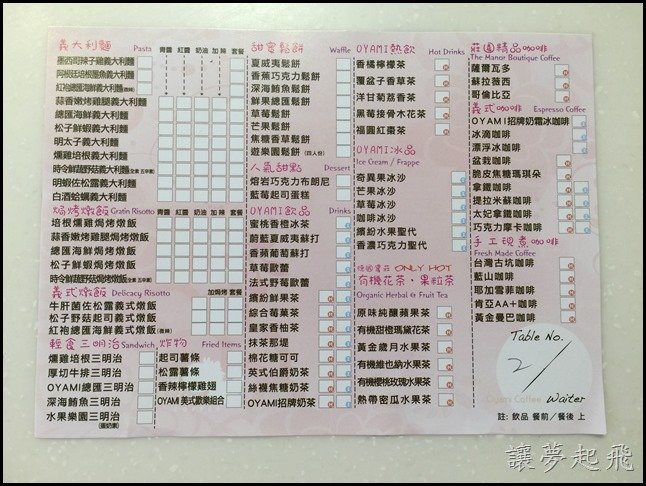 義大利麵 Pasta 青醬 紅醬 奶油 加辣 套餐
墨西哥辣子雞義大利麵
阿根廷培根墨魚義大利麵
紅袍總匯海鮮義大利麵(微辣)
蒜香嫩烤雞腿義大利麵
總匯海鮮義大利麵
松子鮮蝦義大利麵
明太子義大利麵
燻雞培根義大利麵
時令鮮蔬野菇義大利麵(全素 五辛素)
明蝦佐松露義大利麵
白酒蛤蠣義大利麵
焗烤燉飯 Gratin Risotto 青醬 紅醬 奶油 加辣 套餐
培根燻雞焗烤燉飯
蒜香嫩烤雞腿焗烤燉飯
總匯海鮮焗烤燉飯
松子鮮蝦焗烤燉飯
時令鮮蔬野菇焗烤燉飯(全素 五辛素)
義式燉飯 Delicacy Risotto 加焗烤 套餐
牛肝菌佐松露義式燉飯
松子野菇起司義式燉飯
紅袍總匯海鮮義式燉飯(微辣)
輕食三明治 Sandwich
燻雞起司三明治
厚切牛排三明治
OYAMI總匯三明治
深海鮪魚三明治
水果樂園三明治
(蛋奶素)
炸物 Fried Items
起司薯條
松露薯條
香辣檸檬雞翅
OYAMI 美式歡樂組合
甜蜜鬆餅 Waffle
夏威夷鬆餅
香蕉巧克力鬆餅
深海鮪魚鬆餅
鮮果總匯鬆餅
草莓鬆餅
芒果鬆餅
焦糖香草鬆餅
遊樂園鬆餅(四人份)
人氣甜點 Dessert
熔岩巧克力布朗尼
藍莓起司蛋糕
OYAMI飲品 Drinks
蜜桃香橙冰茶
蔚藍夏威夷蘇打
香蘋葡萄蘇打
草莓歐蕾
法式野莓歐蕾
繽紛鮮果茶
綜合莓菓茶
皇家香柚茶
抹茶那堤
棉花糖可可
英式伯爵奶茶
絲襪焦糖奶茶
OYAMI招牌奶茶
OYAMI熱飲 Hot Drinks
香橘檸檬茶
覆盆子香草茶
洋甘菊荔香茶
黑莓接骨木花茶
福圓紅棗茶
OYAMI冰品
Ice Cream / Frappe
奇異果冰沙
芒果冰沙
草莓冰沙
咖啡冰沙
繽紛水果聖代
香濃巧克力聖代
德國農莊 ONLY HOT
有機花茶‧果粒茶
Organic Herbal & Fruit Tea
原味純釀蘋果茶
有機甜橙瑪黛花茶
黃金歲月水果茶
有機維也納水果茶
有機櫻桃玫瑰水果茶
熱帶密瓜水果茶
莊園精品咖啡
The Manor Boutique Coffee
薩爾瓦多
蘇拉薇西
哥倫比亞
義式咖啡 Espresso Coffee
OYAMI招牌奶霜冰咖啡
冰滴咖啡
漂浮冰咖啡
盆栽咖啡
脆皮焦糖瑪琪朵
拿鐵咖啡
提拉米蘇咖啡
太妃拿鐵咖啡
巧克力摩卡咖啡
手工現煮咖啡
Fresh Made Coffee
台灣古坑咖啡
藍山咖啡
耶加雪菲咖啡
肯亞AA+咖啡
黃金曼巴咖啡
Table No.
2
Oyami Coffee Waiter
註: 飲品 餐前／餐後 上
讓夢起飛